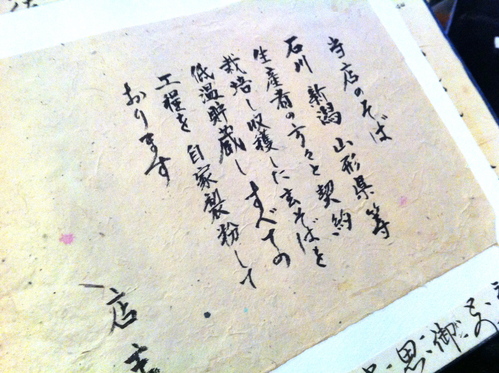 当店のそば
石川 新潟 山形県等
生産者の方々と契約
栽培し収穫した玄そばを
低温貯蔵し すべての
工程を 自家製粉して
おります
店主
思 御